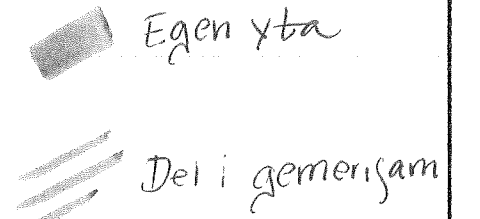 Egen yta
Del i gemensam